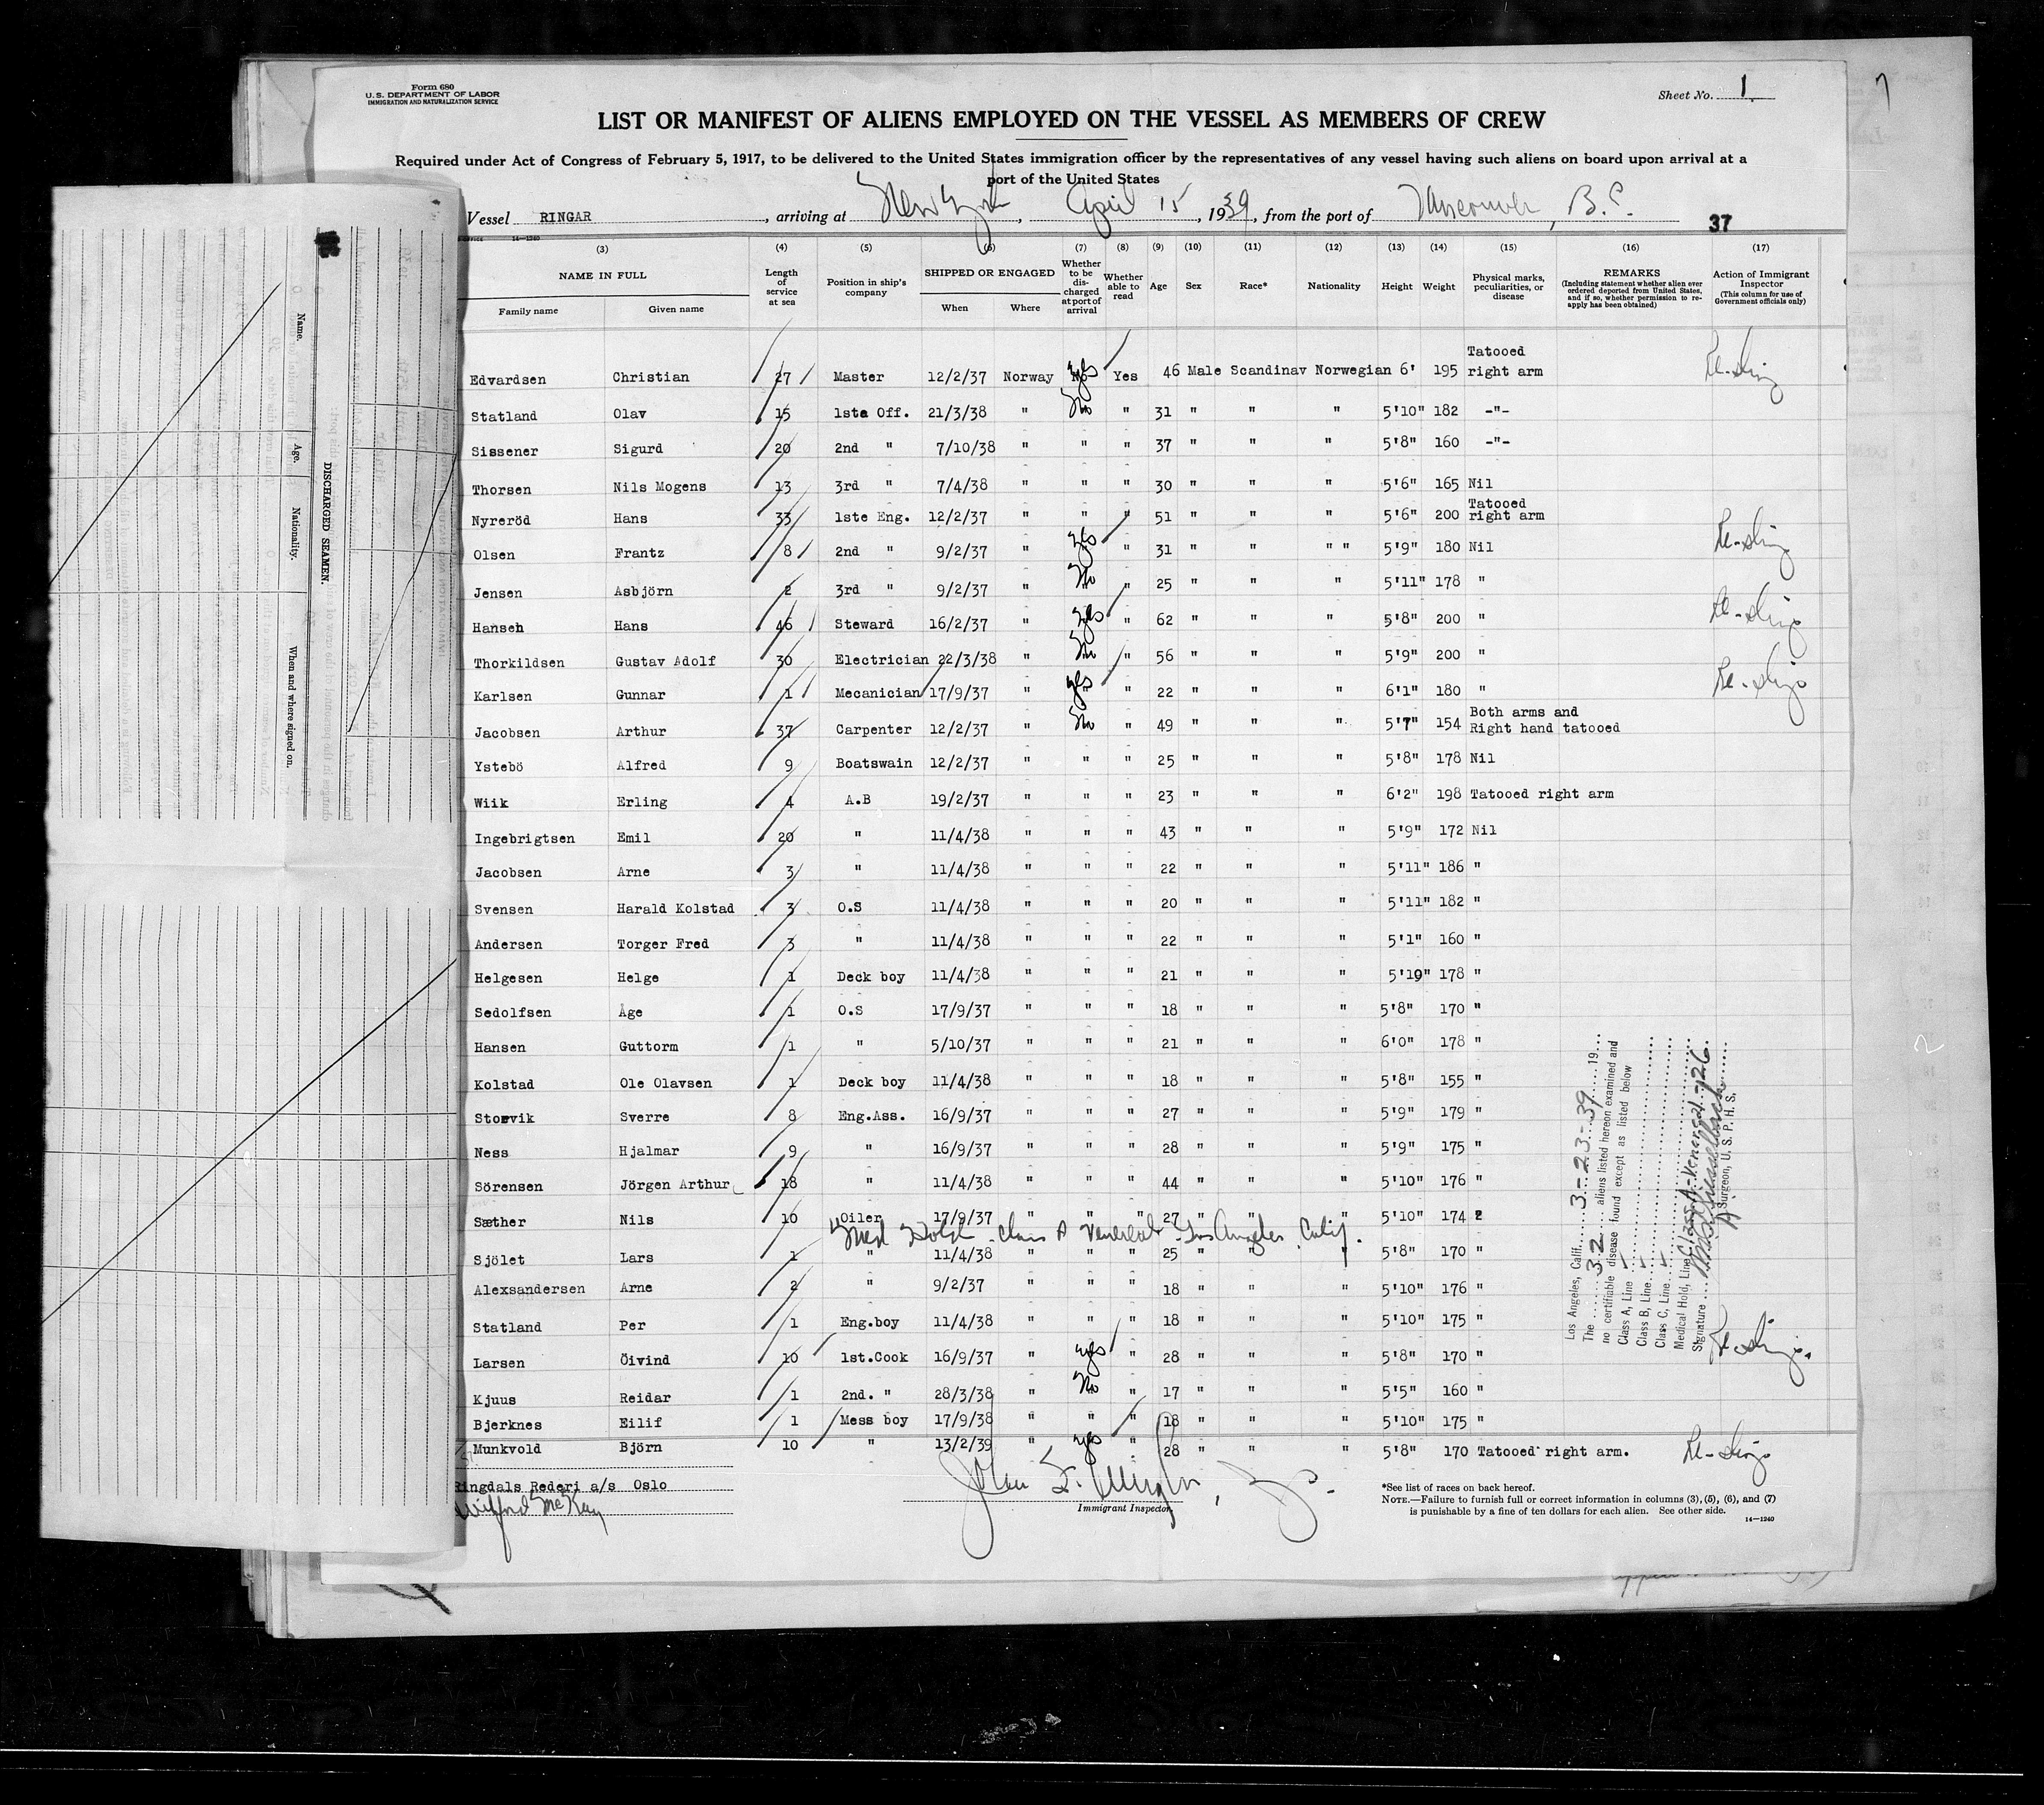 Form 680
U.S. DEPARTMENT OF LABOR
IMMIGRATION AND NATURALIZATION SERVICE
Sheet No. 1
LIST OR MANIFEST OF ALIENS EMPLOYED ON THE VESSEL AS MEMBERS OF CREW
Required under Act of Congress of February 5, 1917, to be delivered to the United States immigration officer by the representatives of any vessel having such aliens on board upon arrival at a
port of the United States
Vessel RINGAR, arriving at New York, April 15, 1939, from the port of Vancouver, B.C.
37
14—1240
(3) (4) (5) (6) (7) (8) (9) (10) (11) (12) (13) (14) (15) (16) (17)
NAME IN FULL
Family name Given name
Length of service at sea
Position in ship's company
SHIPPED OR ENGAGED
When Where
Whether to be discharged at port of arrival
Whether able to read
Age Sex Race* Nationality Height Weight
Physical marks, peculiarities, or disease
REMARKS
(Including statement whether alien ever ordered deported from United States, and if so, whether permission to reapply has been obtained)
Action of Immigrant Inspector
(This column for use of Government officials only)
Edvardsen Christian 27 Master 12/2/37 Norway Yes Yes 46 Male Scandinav Norwegian 6' 195 Tatooed right arm
Statland Olav 15 1ste Off. 21/3/38 " No " 31 " " " 5'10" 182 -"-
Sissener Sigurd 20 2nd " 7/10/38 " " " 37 " " " 5'8" 160 -"-
Thorsen Nils Mogens 13 3rd " 7/4/38 " " " 30 " " " 5'6" 165 Nil
Nyreröd Hans 33 1ste Eng. 12/2/37 " " " 51 " " " 5'6" 200 Tatooed right arm
Olsen Frantz 8 2nd " 9/2/37 " Yes " 31 " " " " 5'9" 180 Nil
Jensen Asbjörn 2 3rd " 9/2/37 " No " 25 " " " 5'11" 178 "
Hansen Hans 46 Steward 16/2/37 " Yes " 62 " " " 5'8" 200 "
Thorkildsen Gustav Adolf 30 Electrician 22/3/38 " No " 56 " " " 5'9" 200 "
Karlsen Gunnar 1 Mecanician 17/9/37 " Yes " 22 " " " 6'1" 180 "
Jacobsen Arthur 37 Carpenter 12/2/37 " No " 49 " " " 5'7" 154 Both arms and Right hand tatooed
Ystebö Alfred 9 Boatswain 12/2/37 " " " 25 " " " 5'8" 178 Nil
Wiik Erling 4 A.B 19/2/37 " " " 23 " " " 6'2" 198 Tatooed right arm
Ingebrigtsen Emil 20 " 11/4/38 " " " 43 " " " 5'9" 172 Nil
Jacobsen Arne 3 " 11/4/38 " " " 22 " " " 5'11" 186 "
Svensen Harald Kolstad 3 O.S 11/4/38 " " " 20 " " " 5'11" 182 "
Andersen Torger Fred 3 " 11/4/38 " " " 22 " " " 5'1" 160 "
Helgesen Helge 1 Deck boy 11/4/38 " " " 21 " " " 5'10" 178 "
Sedolfsen Åge 1 O.S 17/9/37 " " " 18 " " " 5'8" 170 "
Hansen Guttorm 1 " 5/10/37 " " " 21 " " " 6'0" 178 "
Kolstad Ole Olavsen 1 Deck boy 11/4/38 " " " 18 " " " 5'8" 155 "
Storvik Sverre 8 Eng.Ass. 16/9/37 " " " 27 " " " 5'9" 179 "
Ness Hjalmar 9 " 16/9/37 " " " 28 " " " 5'9" 175 "
Sörensen Jörgen Arthur 18 " 11/4/38 " " " 44 " " " 5'10" 176 "
Sæther Nils 10 Oiler 17/9/37 " " " 27 " " " 5'10" 174 "
Med Hold. Class A Venereal Los Angeles, Calif.
Sjölet Lars 1 " 11/4/38 " " " 25 " " " 5'8" 170 "
Alexsandersen Arne 2 " 9/2/37 " " " 18 " " " 5'10" 176 "
Statland Per 1 Eng.boy 11/4/38 " " " 18 " " " 5'10" 175 "
Larsen Öivind 10 1st.Cook 16/9/37 " Yes " 28 " " " 5'8" 170 "
Kjuus Reidar 1 2nd. " 28/3/38 " No " 17 " " " 5'5" 160 "
Bjerknes Eilif 1 Mess boy 17/9/38 " " " 18 " " " 5'10" 175 "
Munkvold Björn 10 " 13/2/39 " Yes " 28 " " " 5'8" 170 Tatooed right arm.
Ringdals Rederi a/s Oslo
Wilford McKay
Immigrant Inspector
*See list of races on back hereof.
NOTE.—Failure to furnish full or correct information in columns (3), (5), (6), and (7)
is punishable by a fine of ten dollars for each alien. See other side.
14—1240
Los Angeles, Calif. 3-23-39 19
The 32 aliens listed hereon examined and
no certifiable disease found except as listed below
Class A, Line
Class B, Line
Class C, Line
Medical Hold, Line Class A-Venereal-#26.
Signature
Surgeon, U. S. P. H. S.
DISCHARGED SEAMEN.
Name. Age. Nationality. When and where signed on.